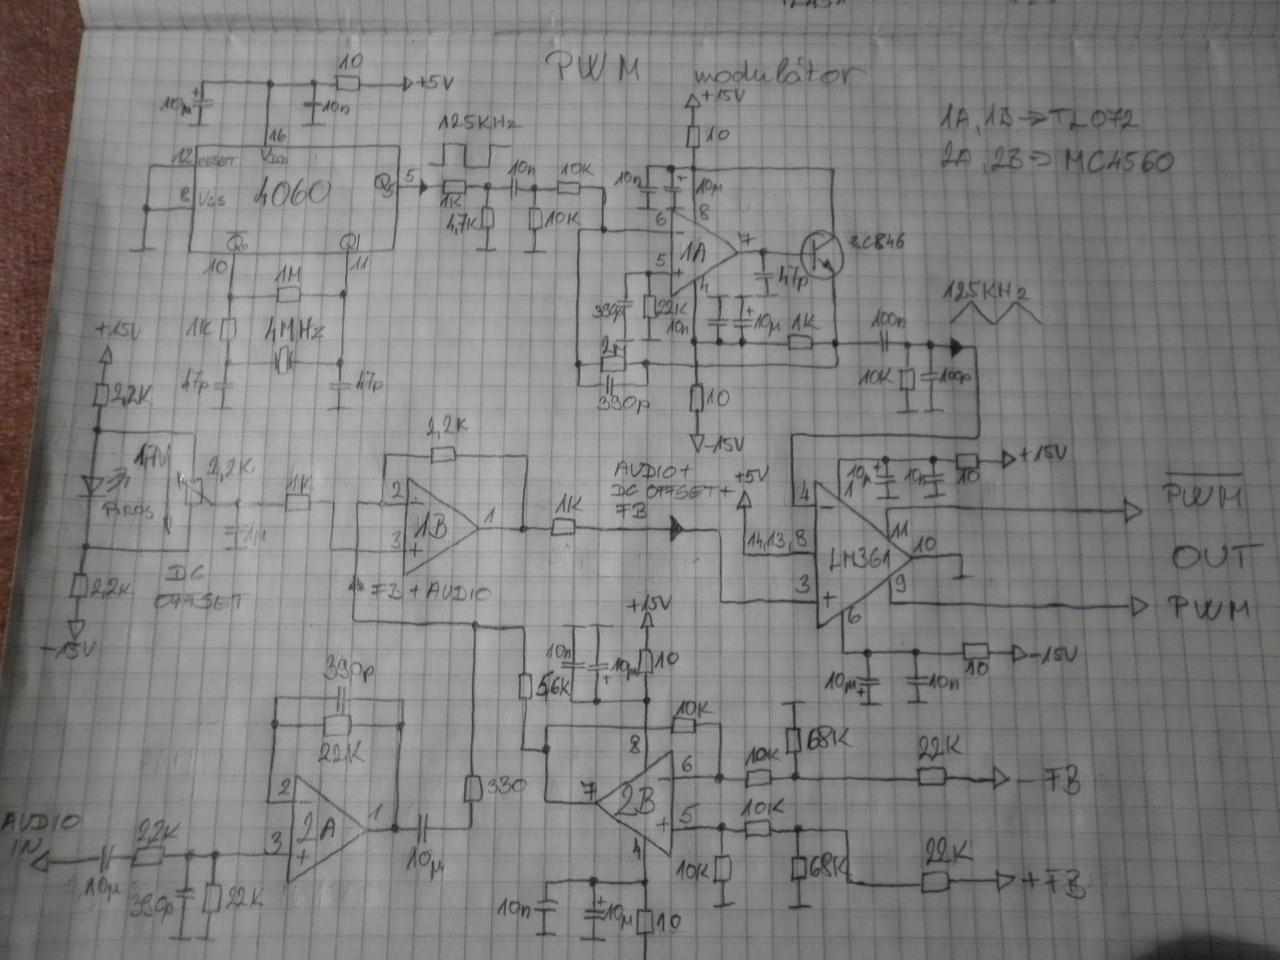 PWM modulátor
1A, 1B → TL072
2A, 2B → MC4560
10
+5V
10µ
+
10n
16
VDD
12
RESET
8
VSS
4060
Q5
5
Q̅₀
Q1
10
11
1M
1K
4MHz
47p
47p
125KHz
1K
4,7K
10n
10K
10K
+15V
10
10n
+
10µ
6
8
-
1A
7
5
+
4
BC846
47p
390p
22K
10n
+
10µ
1K
2K
390p
10
-15V
100n
10K
100p
125KHz
+15V
2,2K
1,7V
PIROS
2,2K
1µ
1K
2,2K
-15V
DC
OFFSET
2,2K
2
-
1B
1
3
+
FB + AUDIO
1K
AUDIO +
DC OFFSET +
FB
+5V
14,13,8
4
-
1
10µ
+
10n
10
+15V
LM361
11
10
9
3
+
6
P̅W̅M̅
OUT
PWM
10µ
+
10n
10
-15V
390p
22K
2
-
2A
1
3
+
AUDIO
IN
10µ
22K
390p
22K
10µ
330
5,6K
+15V
10n
10µ
+
10
8
10K
7
2B
-
6
+
5
4
10K
68K
22K
-FB
10K
10K
68K
22K
+FB
10n
+
10µ
10